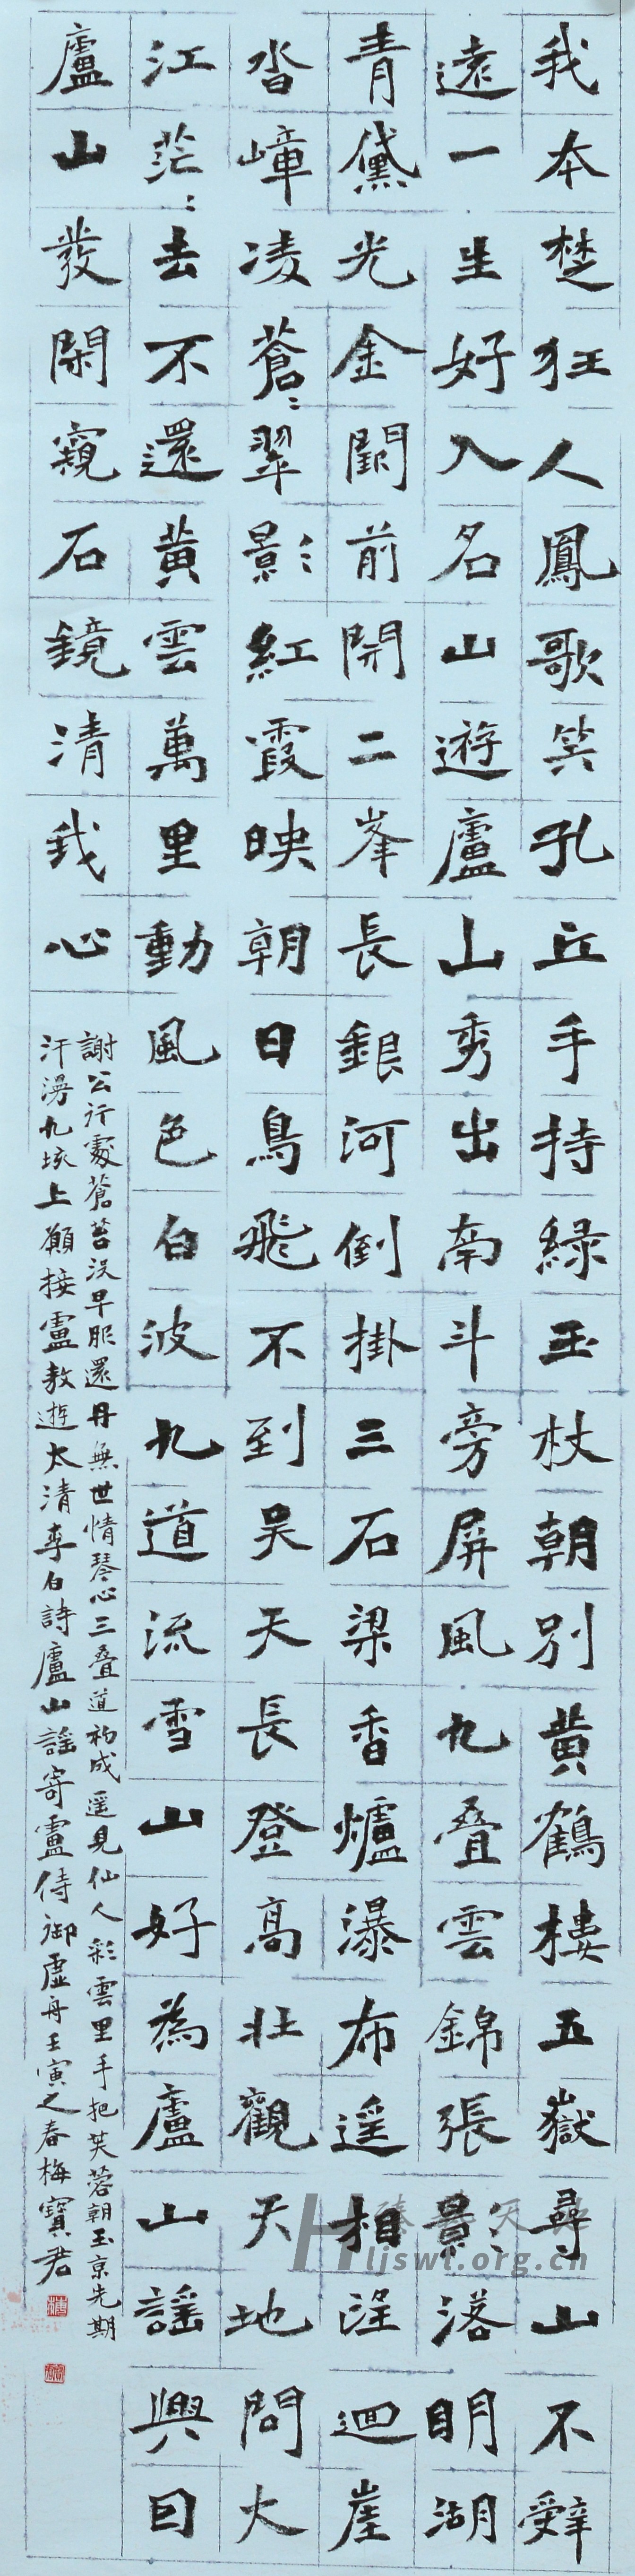 我本楚狂人鳳歌笑孔丘手持緑玉杖朝别黄鶴樓五嶽尋山不辤
遠一生好入名山遊廬山秀出南斗旁屏風九叠雲錦張影落明湖
青黛光金闕前開二峯長銀河倒掛三石梁香爐瀑布遥相望迴崖
沓嶂凌蒼〻翠影紅霞映朝日鳥飛不到吴天長登高壯觀天地問大
江茫〻去不還黄雲萬里動風色白波九道流雪山好為廬山謡興因
廬山發閑窺石鏡清我心
謝公行處蒼苔没早服還丹無世情琴心三叠道初成遥見仙人彩雲里手把芙蓉朝玉京先期
汗漫九垓上願接盧敖遊太清李白詩廬山謡寄盧侍御虚舟壬寅之春梅寶君
Hljswl.org.cn